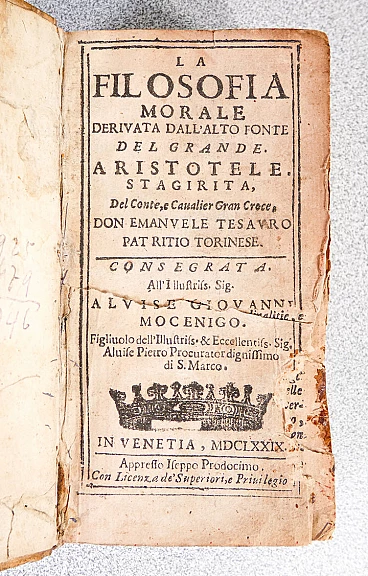 LA
FILOSOFIA
MORALE
DERIVATA DALL'ALTO FONTE
DEL GRANDE.
ARISTOTELE.
STAGIRITA,
Del Conte, e Caualier Gran Croce,
DON EMANVELE TESAVRO
PATRITIO TORINESE.
CONSEGRATA.
All'Illustriſs. Sig.
ALVISE GIOVANNI
MOCENIGO.
Figliuolo dell'Illustriſs. & Eccellentiſs. Sig.
Aluiſe Pietro Procurator digniſſimo
di S. Marco.
IN VENETIA, MDCLXXIX.
Appreſſo Iſeppo Prodocimo,
Con Licenza de' Superiori, e Priuilegio